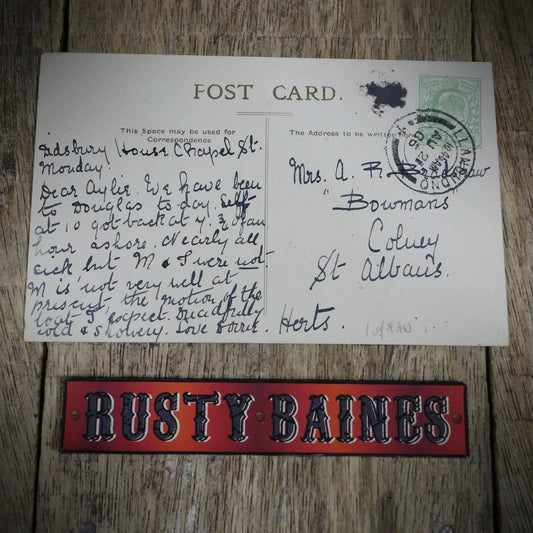 POST CARD.
This Space may be used for
Correspondence
The Address to be written here
LLANDUDNO
AU 21
06
Didsbury House Chapel St.
Monday.
Dear Aylie. We have been
to Douglas to day. Left
at 10 got back at 7. 3 of an
hour ashore. Nearly all
sick but M & I were not.
M is not very well at
present, the motion of the
boat I expect. Dreadfully
cold & showery. Love Dorrie.
Mrs. A. R.
"Bowmans
Colney
St Albans.
Herts.
RUSTY BAINES